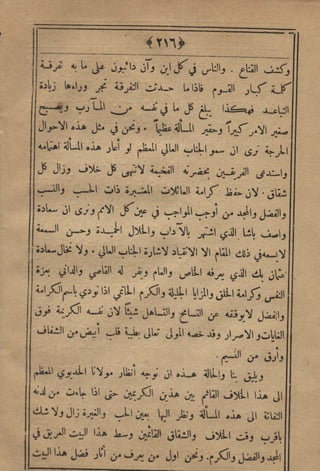 ﴿٢١٦﴾
وكشف القناع . والناس في كل اين وآن دائبون على ما به تفرقة
كلمة كبار القوم فاذا ما حدثت التفرقة تجر وراءها زيادة
التباعد فهكذا يبلغ كل ما في نفسه من المآرب ويصبح
صغير الامر كبيراً وحقير المسألة عظيماً . ونحن في مثل هذه الاحوال
الحرجة نرى ان سمو الجناب العالي المعظم لو أعار هذه المسألة اهتمامه
واستدعى الفريقين بحضرته الفخيمة لانتهى كل خلاف وزال كل
شقاق . لان حفظ كرامة العائلات المعتبرة ذات الحسب والنسب
والفضل والمجد من أوجب المواجب في عين كل الامم ونرى ان سعادة
واصف باشا الذي اشتهر بالآداب والخلال الحميدة وحسن السمعة
لا يسعه في ذلك المقام الا الانقياد لاشارة الجناب العالي . ولا نخال سعادة
عثمان بك الذي يعرفه الخاص والعام ويقر له القاصي والداني بعزة
النفس وكرامة الخلق والمزايا الجليلة والكرم الحاتمي اذا نودي باسم الكرامة
والفضل لا يوقفه عن التسامح والتساهل شيئاً لان نفسه الكريمة فوق
الغايات والاصرار وقد خصه المولى تعالى بطيبة قلب أبيض من الشفاف
وأرق من النسيم
ويليق بنا والحالة هذه ان نوجه أنظار مولانا الخديوي المعظم
الى هذا الخلاف القائم بين هذين الكريمين حتى اذا جاءت من لدنه
التفاتة الى هذه المسألة ونظر اليها بعين الحب والغيرة زال ولا شك
باقرب وقت الخلاف والشقاق القائمين وسط هذا البيت العريق في
المجد والفضل والكرم . ونحن اول من يعرف من آثار فضل هذا البيت